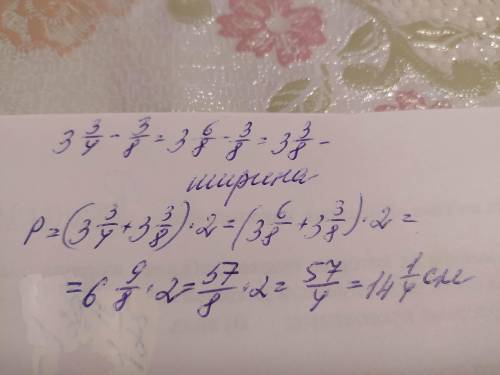 3 3/4 - 3/8 = 3 6/8 - 3/8 = 3 3/8 -
ширина
P = (3 3/4 + 3 3/8) · 2 = (3 6/8 + 3 3/8) · 2 =
= 6 9/8 · 2 = 57/8 · 2 = 57/4 = 14 1/4 см